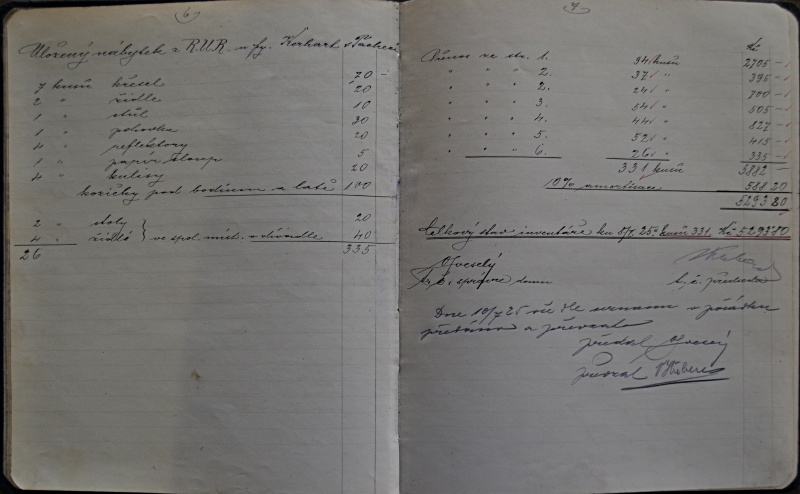 6
Uložený nábytek z R.U.R. u fy. Korhart v Pacheři
7 kusů křesel 70 —
2 " židle 20
1 " stůl 10
1 " pohovka 30
4 " reflektory 20
1 " papír. sloup 5
4 " kulisy 20
kozičky pod bodium a latě 100
2 " stoly
4 " židle } ve spol. míst. v divadle 20
40
26 335
7
Kč
Přenos ze str. 1. 94 kusů 2705 —
" " " 2. 37 " 395 —
" " " 2. 24 " 700 —
" " " 3. 54 " 505 —
" " " 4. 44 " 827 —
" " " 5. 52 " 415 —
" " " 6. 26 " 335 —
331 kusů 5882 —
10% amortisace 588 20
5293 80
Celkový stav inventáře ku 8/7. 25. kusů 331. Kč 5293.80
OVeselý
t.č. správce domu t.č. předseda
Dne 10/7 25 vše dle seznamu v pořádku
předáno a převzato
předal OVeselý
převzal